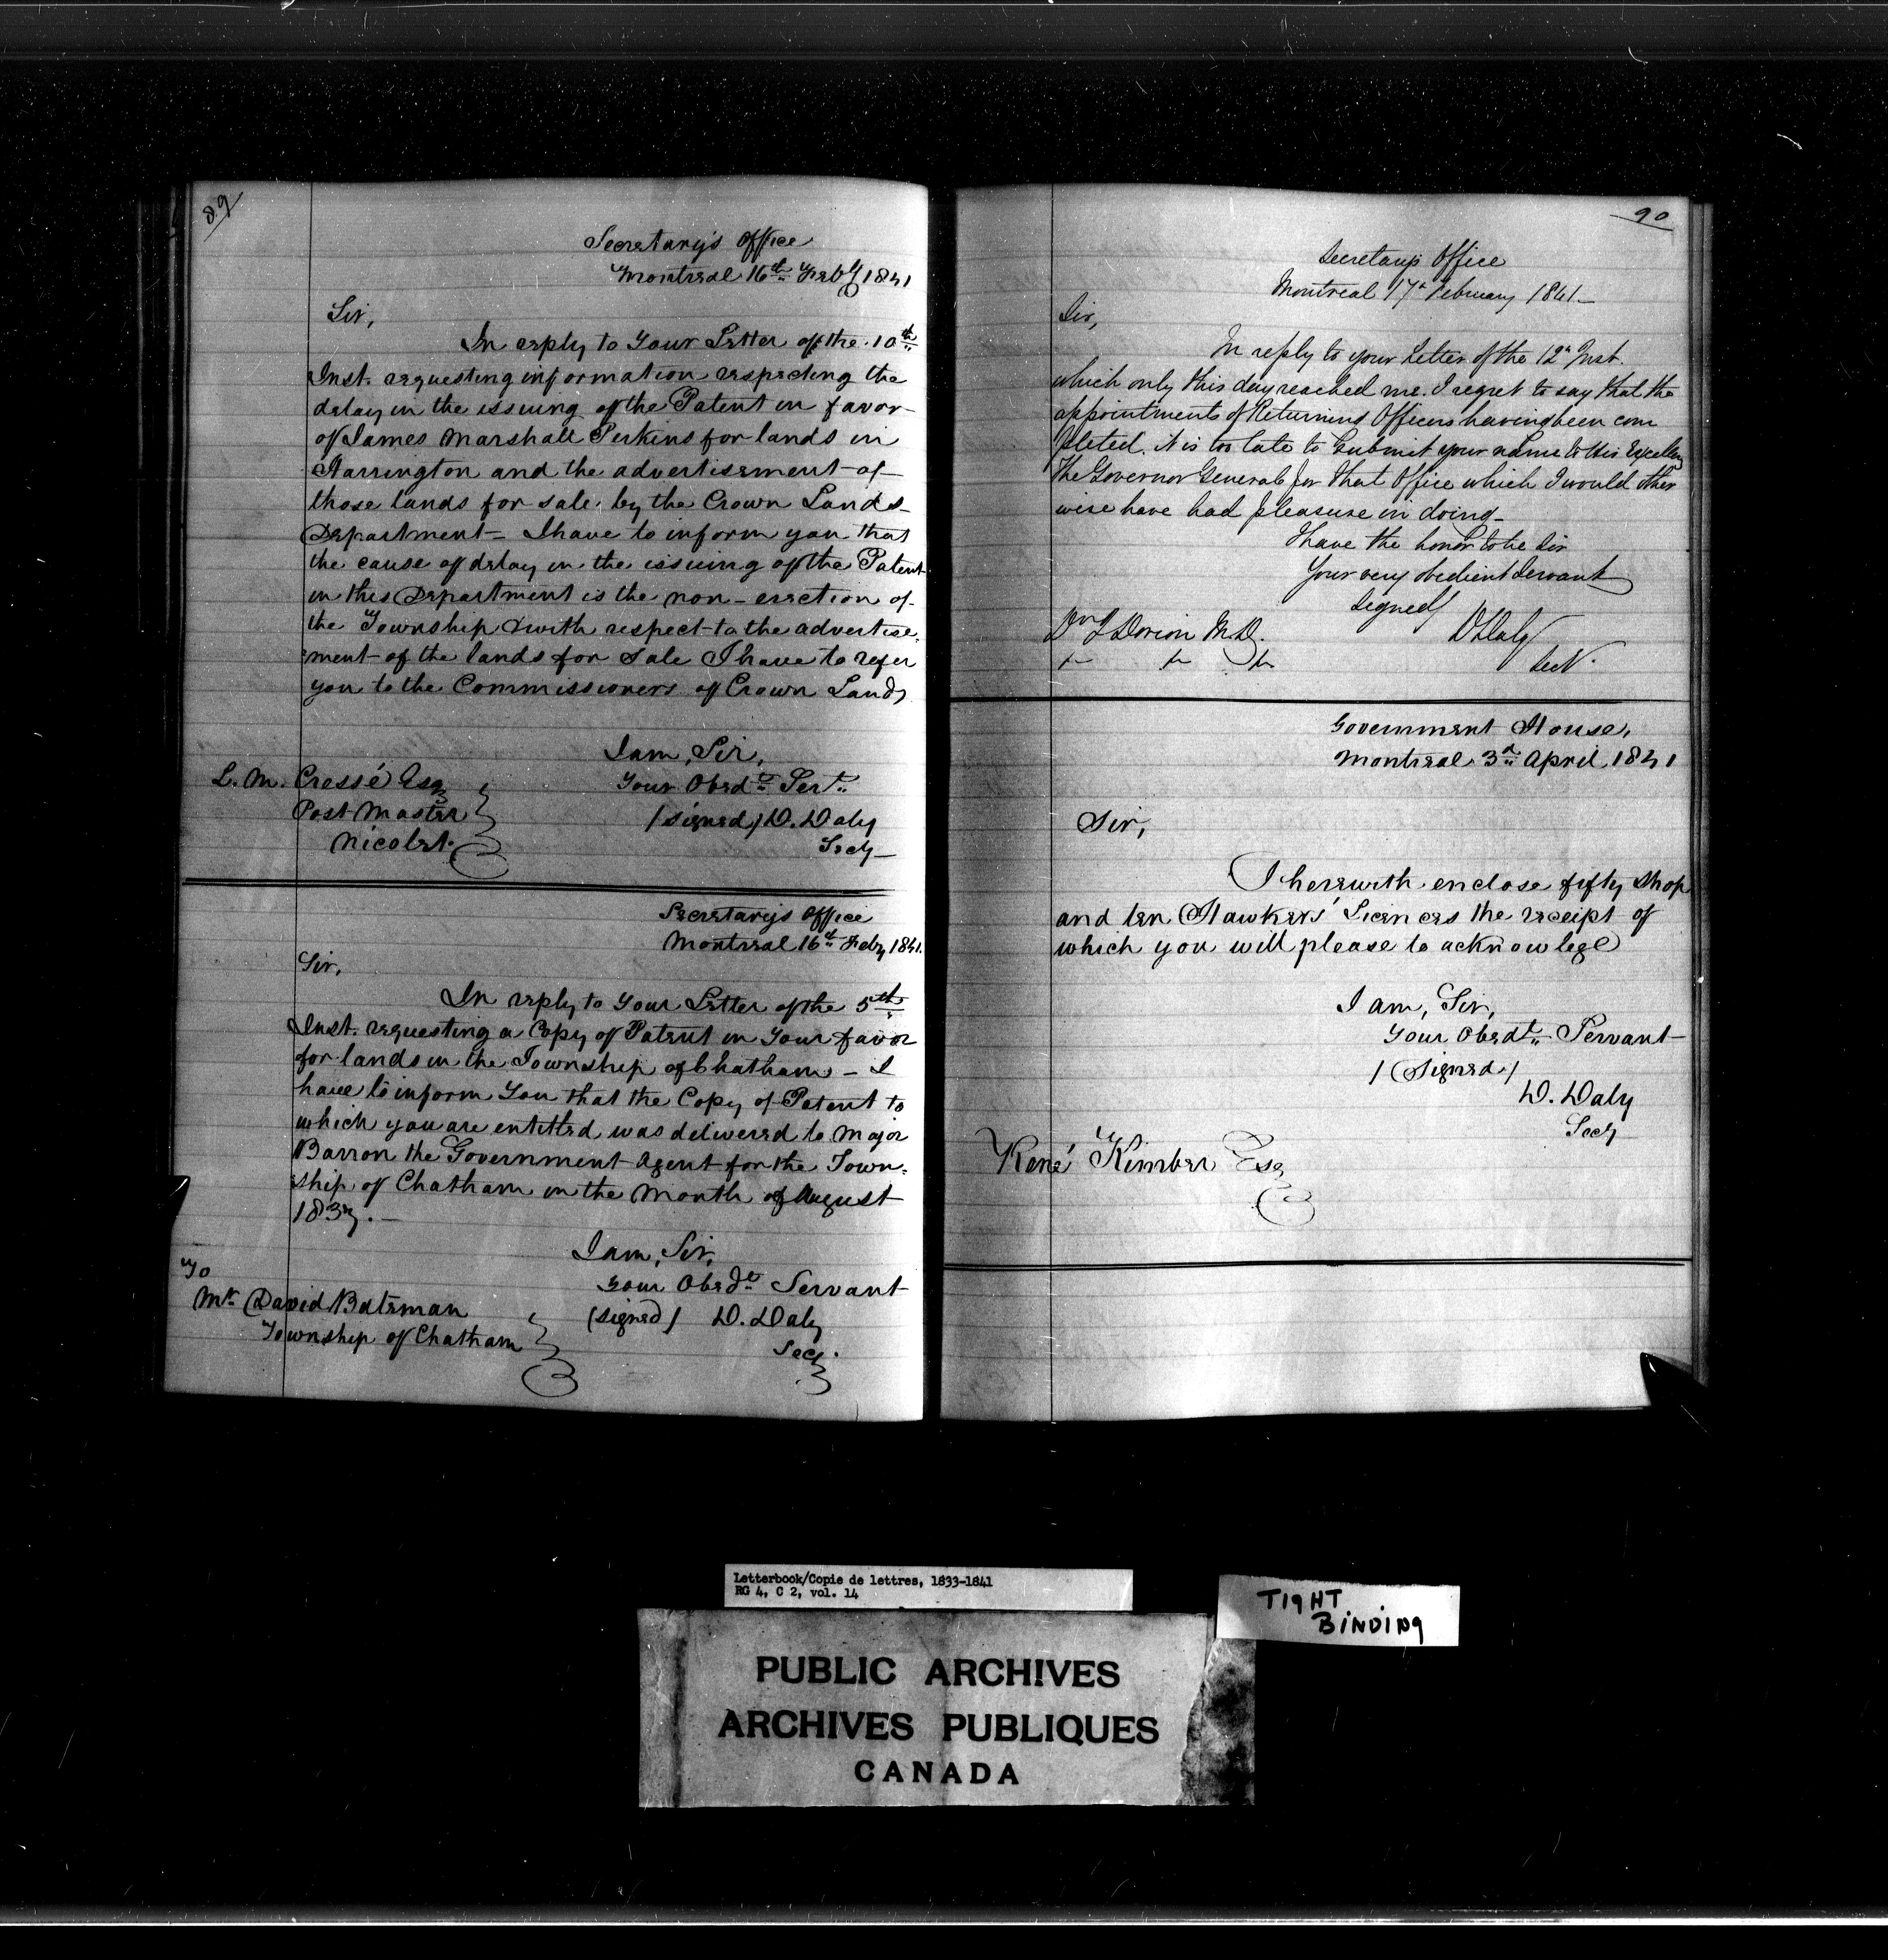 89
Secretary's Office
Montreal 16th Feby 1841
Sir,
In reply to Your Letter of the 10th
Inst. requesting information respecting the
delay in the issuing of the Patent in favor
of James Marshall Perkins for lands in
Harrington and the advertisement of
those lands for sale, by the Crown Lands
Department - I have to inform you that
the cause of delay in the issuing of the Patent
in this Department is the non-erection of
the Township & with respect to the advertise-
ment of the lands for Sale I have to refer
you to the Commissioners of Crown Lands
I am, Sir,
Your Obedt Sert
(signed) D. Daly
Secy
L. M. Cressé Esq
Post Master
Nicolet.
Secretary's Office
Montreal 16th Feby 1841.
Sir,
In reply to Your Letter of the 5th
Inst. requesting a Copy of Patent in Your favor
for lands in the Township of Chatham - I
have to inform You that the Copy of Patent to
which you are entitled was delivered to Major
Barron the Government Agent for the Town-
ship of Chatham in the Month of August
1837. -
I am, Sir,
Your Obedt Servant
(signed) D. Daly
Secy.
To
Mr David Bateman
Township of Chatham
90
Secretarys Office
Montreal 17th February 1841 -
Sir,
In reply to your Letter of the 12th Inst.
which only this day reached me. I regret to say that the
appointments of Returning Officers having been com
pleted. it is too late to Submit your name to His Excellency
The Governor General for that Office which I would other
wise have had pleasure in doing -
I have the honor to be Sir
Your very obedient Servant
Signed/ D Daly
Secy.
Dorion M.D.
Government House,
Montreal 3rd April 1841
Sir,
I herewith enclose fifty Shop
and ten Hawkers' Licences the receipt of
which you will please to acknowlege
I am, Sir,
Your Obedt Servant
/(Signed)/
D. Daly
Secy
René Kimber Esq
Letterbook/Copie de lettres, 1833-1841
RG 4, C 2, vol. 14
TIGHT
BINDING
PUBLIC ARCHIVES
ARCHIVES PUBLIQUES
CANADA